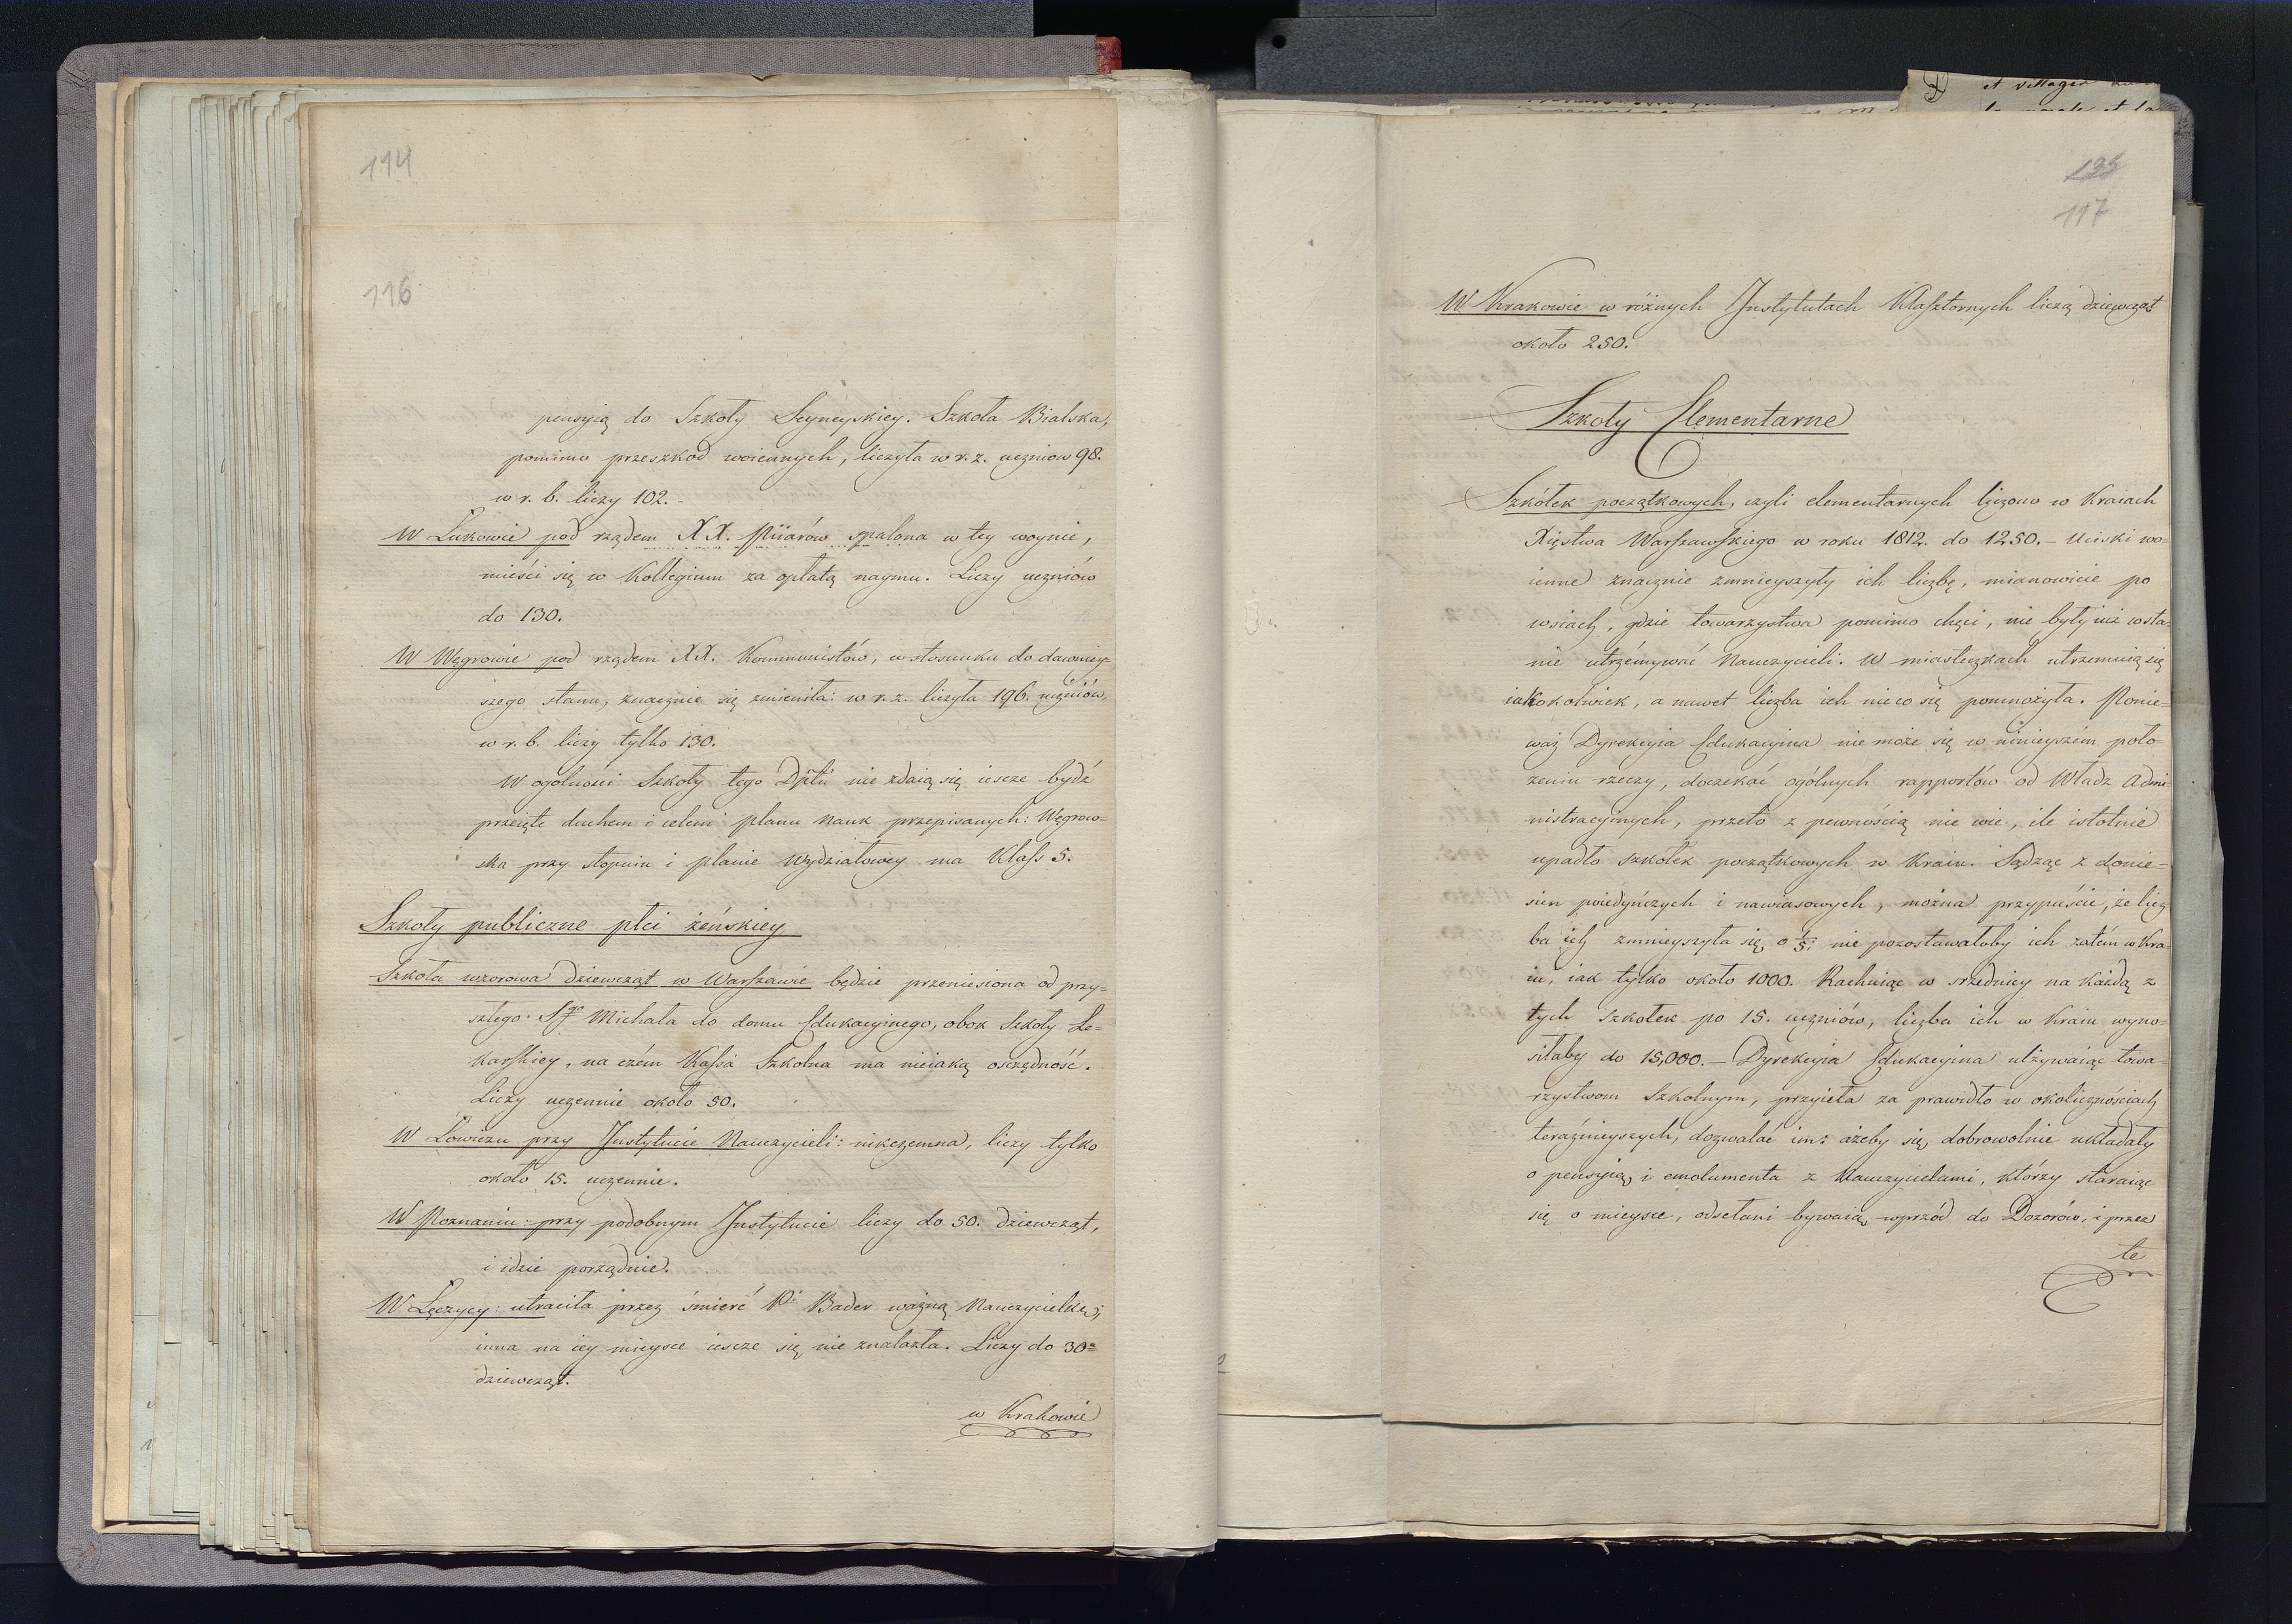 114
116
pensyią do Szkoły Seyneyskiey. Szkoła Bialska,
pomimo przeszkod woiennych, liczyła w r. z. uczniow 98.
w r. b. liczy 102.-
W Łukowie pod rządem XX. Piiarów spalona w tey woynie,
mieści się w Kollegium za opłatą naymu. Liczy uczniów
do 130.
W Węgrowie pod rządem XX. Kommunistów, w stosunku do dawniey=
szego stanu, znacznie się zmieniła: w r. z. liczyła 196. uczniów,
w r. b. liczy tylko 130.
W ogolnosci Szkoły tego Dptu nie zdaią się iescze bydź
przeięte duchem i celem planu Nauk przepisanych: Węgrow=
ska przy stopniu i planie Wydziałowey ma Klass 5.
Szkoły publiczne płci żeńskiey
Szkoła wzorowa dziewcząt w Warszawie będzie przeniesiona od przy=
szłego Sgo Michała do domu Edukacyinego, obok Szkoły Le=
karskiey, na czém Kassa Szkolna ma nieiaką osczędność.
Liczy uczennic około 50.
W Łowiczu przy Instytucie Nauczycieli: nikczemna, liczy tylko
około 15. uczennic.
W Poznaniu: przy podobnym Instytucie liczy do 50. dziewcząt,
i idzie porządnie.
W Łęczycy: utraciła przez śmierć Pi Bader ważną Nauczycielkę;
inna na iey mieysce iescze się nie znalazła. Liczy do 30=
dziewcząt.
w Krakowie
135
117
W Krakowie w różnych Instytutach Klasztornych liczą dziewcząt
około 250.
Szkoły Elementarne
Szkółek początkowych, czyli elementarnych liczono w Kraiach
Xięstwa Warszawskiego w roku 1812. do 1250.- Uciski wo=
ienne znacznie zmnieyszyły ich liczbę, mianowicie po
wsiach, gdzie towarzystwa pomimo chęci, nie były iuż w sta=
nie utrzémywać Nauczycieli. W miasteczkach utrzemuią się
iakokolwiek, a nawet liczba ich nieco się pomnożyła. Ponie=
waż Dyrekcyia Edukacyina nie może się w ninieyszém poło=
żeniu rzeczy, doczekać ogólnych rapportów od Władz Admi=
nistracyinych, przeto z pewnością nie wie, ile istotnie
upadło szkołek początkowych w Kraiu. Sądząc z donie=
sien poiedyńczych i nawiasowych, można przypuścić, że licz
ba ich zmnieyszyła się o 1/5; nie pozostawałoby ich zatém w Kra=
iu, iak tylko około 1000. Rachuiąc w srzedniey na każdą z
tych szkołek po 15. uczniów, liczba ich w Kraiu wyno=
siłaby do 15,000.- Dyrekcyia Edukacyina ulżywaiąc towa=
rzystwom Szkolnym, przyięła za prawidło w okolicznościach
teraźnieyszych, dozwalać im: ażeby się dobrowolnie układały
o pensyią i emolumenta z Nauczycielami, którzy staraiąc
się o mieysce, odsełani bywaią wprzód do Dozorów, i przez
te